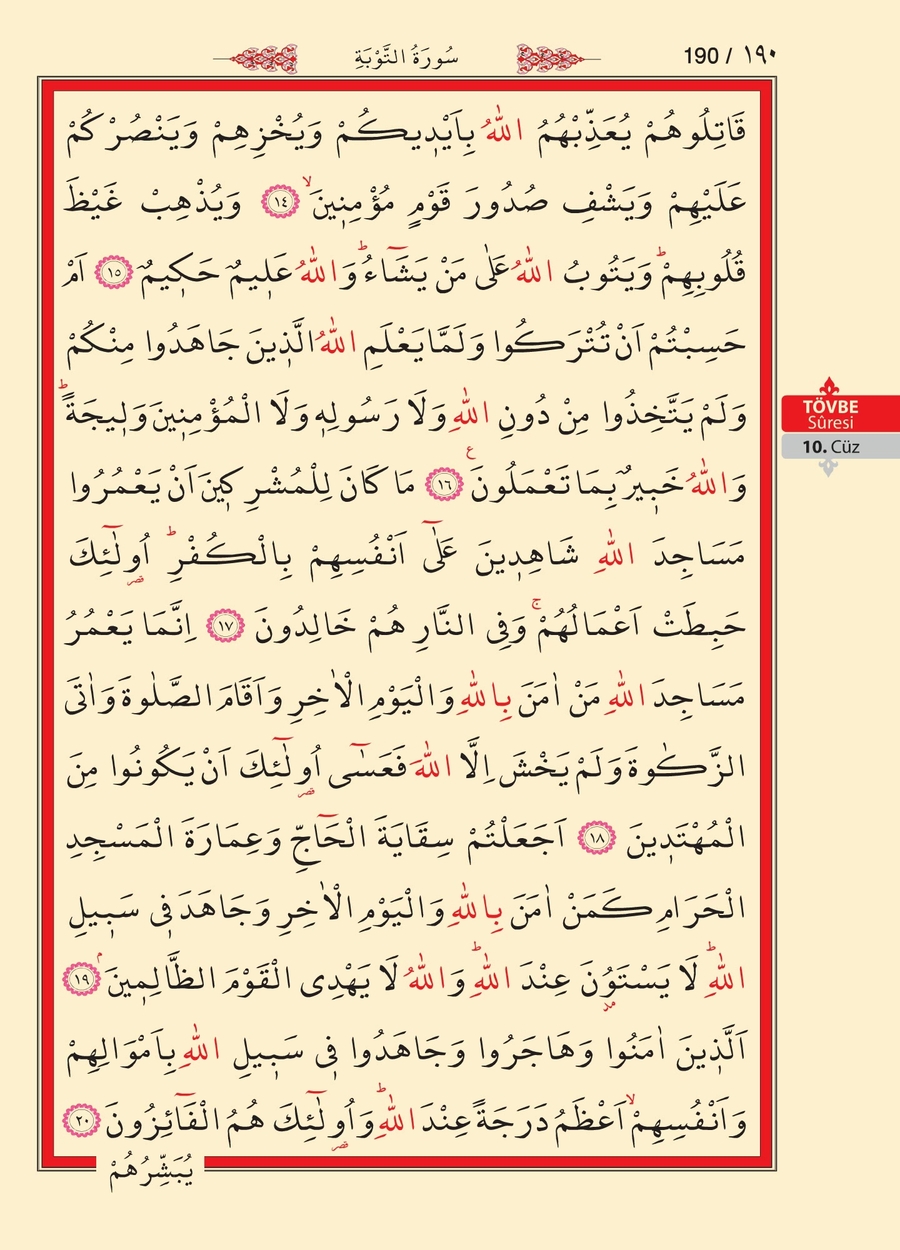 190 / ١٩٠
سُورَةُ التَّوْبَةِ
قَاتِلُوهُمْ يُعَذِّبْهُمُ اللّٰهُ بِاَيْدٖيكُمْ وَيُخْزِهِمْ وَيَنْصُرْكُمْ
عَلَيْهِمْ وَيَشْفِ صُدُورَ قَوْمٍ مُؤْمِنٖينَۙ ﴿١٤﴾ وَيُذْهِبْ غَيْظَ
قُلُوبِهِمْؕ وَيَتُوبُ اللّٰهُ عَلٰى مَنْ يَشَٓاءُؕ وَاللّٰهُ عَلٖيمٌ حَكٖيمٌ ﴿١٥﴾ اَمْ
حَسِبْتُمْ اَنْ تُتْرَكُوا وَلَمَّا يَعْلَمِ اللّٰهُ الَّذٖينَ جَاهَدُوا مِنْكُمْ
وَلَمْ يَتَّخِذُوا مِنْ دُونِ اللّٰهِ وَلَا رَسُولِهٖ وَلَا الْمُؤْمِنٖينَ وَلٖيجَةًؕ
وَاللّٰهُ خَبٖيرٌ بِمَا تَعْمَلُونَ ع ﴿١٦﴾ مَا كَانَ لِلْمُشْرِكٖينَ اَنْ يَعْمُرُوا
مَسَاجِدَ اللّٰهِ شَاهِدٖينَ عَلٰٓى اَنْفُسِهِمْ بِالْكُفْرِؕ اُو۬لٰٓئِكَ
حَبِطَتْ اَعْمَالُهُمْۚ وَفِى النَّارِ هُمْ خَالِدُونَ ﴿١٧﴾ اِنَّمَا يَعْمُرُ
مَسَاجِدَ اللّٰهِ مَنْ اٰمَنَ بِاللّٰهِ وَالْيَوْمِ الْاٰخِرِ وَاَقَامَ الصَّلٰوةَ وَاٰتَى
الزَّكٰوةَ وَلَمْ يَخْشَ اِلَّا اللّٰهَ فَعَسٰٓى اُو۬لٰٓئِكَ اَنْ يَكُونُوا مِنَ
الْمُهْتَدٖينَ ﴿١٨﴾ اَجَعَلْتُمْ سِقَايَةَ الْحَٓاجِّ وَعِمَارَةَ الْمَسْجِدِ
الْحَرَامِ كَمَنْ اٰمَنَ بِاللّٰهِ وَالْيَوْمِ الْاٰخِرِ وَجَاهَدَ فٖى سَبٖيلِ
اللّٰهِؕ لَا يَسْتَوُ۫نَ عِنْدَ اللّٰهِؕ وَاللّٰهُ لَا يَهْدِى الْقَوْمَ الظَّالِمٖينَۢ ﴿١٩﴾
اَلَّذٖينَ اٰمَنُوا وَهَاجَرُوا وَجَاهَدُوا فٖى سَبٖيلِ اللّٰهِ بِاَمْوَالِهِمْ
وَاَنْفُسِهِمْۙ اَعْظَمُ دَرَجَةً عِنْدَ اللّٰهِؕ وَاُو۬لٰٓئِكَ هُمُ الْفَٓائِزُونَ ﴿٢٠﴾
يُبَشِّرُهُمْ
TÖVBE
Sûresi
10. Cüz